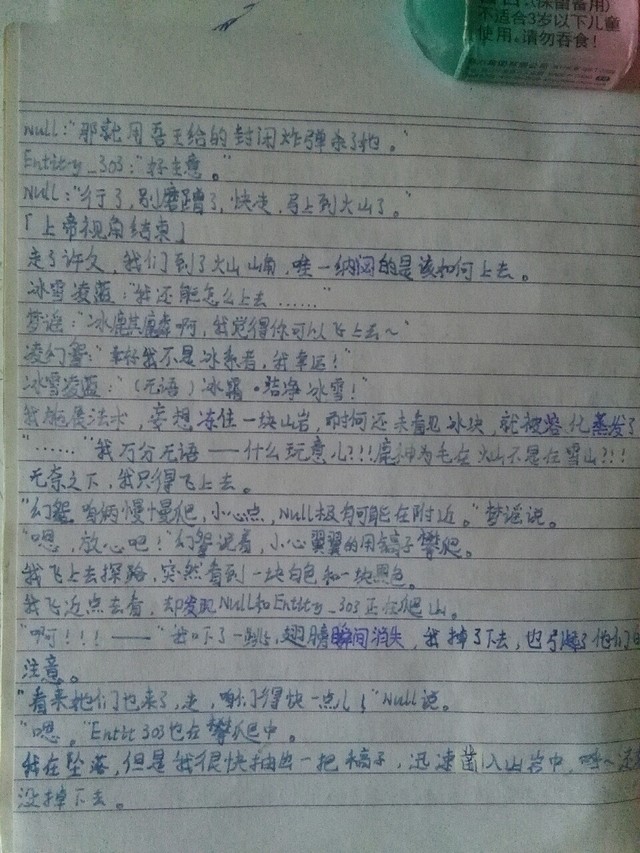 .(保留备用)
不适合3岁以下儿童
使用。请勿吞食！
Null："那就用吾王给的封闭炸弹杀了他。"
Entity_303："好主意。"
Null："行了，别磨蹭了，快走，马上到火山了。"
「上帝视角结束」
走了许久，我们到了火山山角，唯一纳闷的是该如何上去。
冰雪凌蓝："我还能怎么上去……"
梦谣："冰麒麟啊，我觉得你可以飞上去~"
凌幻鸳："幸好我不是冰系者，我幸运！"
冰雪凌蓝："（无语）冰霜·洁净冰雪！"
我施展法术，妄想冻住一块山岩，可还未看见冰块，就被溶化蒸发了
"……"我万分无语——什么玩意儿?!!为毛在火山不是在雪山?!!
无奈之下，我只得飞上去。
"幻鸳咱俩慢慢爬，小心点，Null极有可能在附近。"梦谣说。
"嗯，放心吧！"幻鸳说着，小心翼翼的用镐子攀爬。
我飞上去探路，突然看到一块白色和一块黑色。
我飞近点去看，却发现Null和Entity_303正在爬山。
"啊！！！——"我吓了一跳，翅膀瞬间消失，我掉了下去，也引起了他们的
注意。
"看来她们也来了，走，咱们得快一点儿！"Null说。
"嗯。"Entit 303也在攀爬中。
我在坠落，但是我很快抽出一把稿子，迅速凿入山岩中，呼~还好
没掉下去。